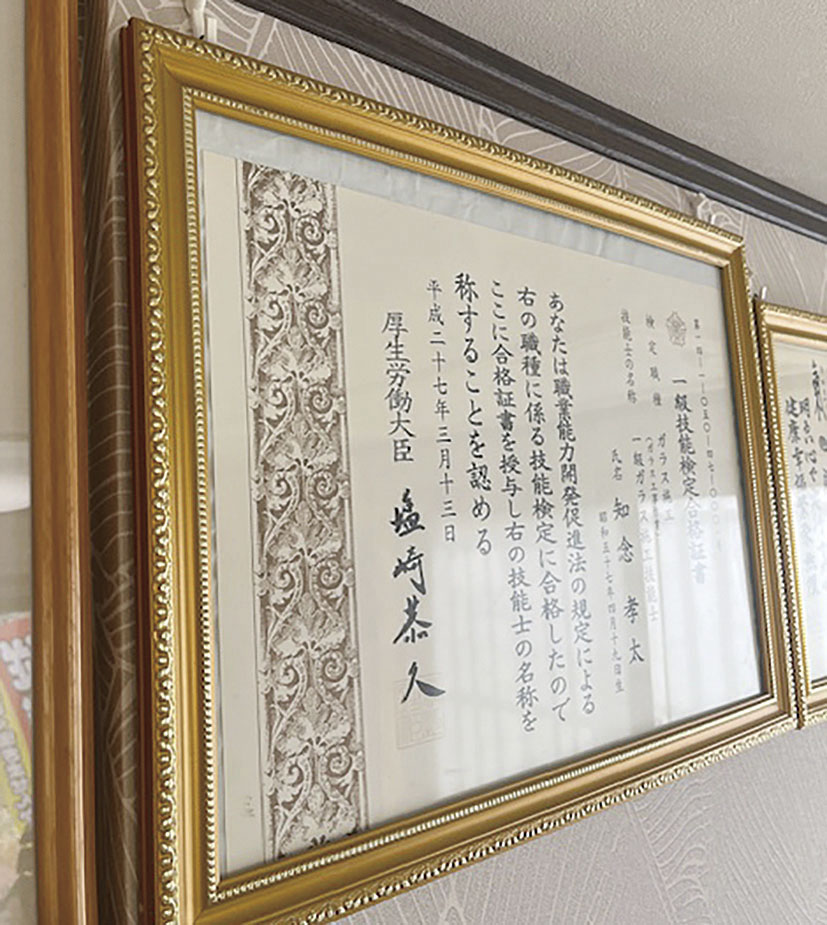 一級技能検定合格証書
検定職種
ガラス施工
技能士の名称
一級ガラス施工技能士
氏名 知念孝太
昭和五十七年四月十九日生
あなたは職業能力開発促進法の規定による
右の職種に係る技能検定に合格したので
ここに合格証書を授与し右の技能士の名称を
称することを認める
平成二十七年三月十三日
厚生労働大臣 塩崎恭久